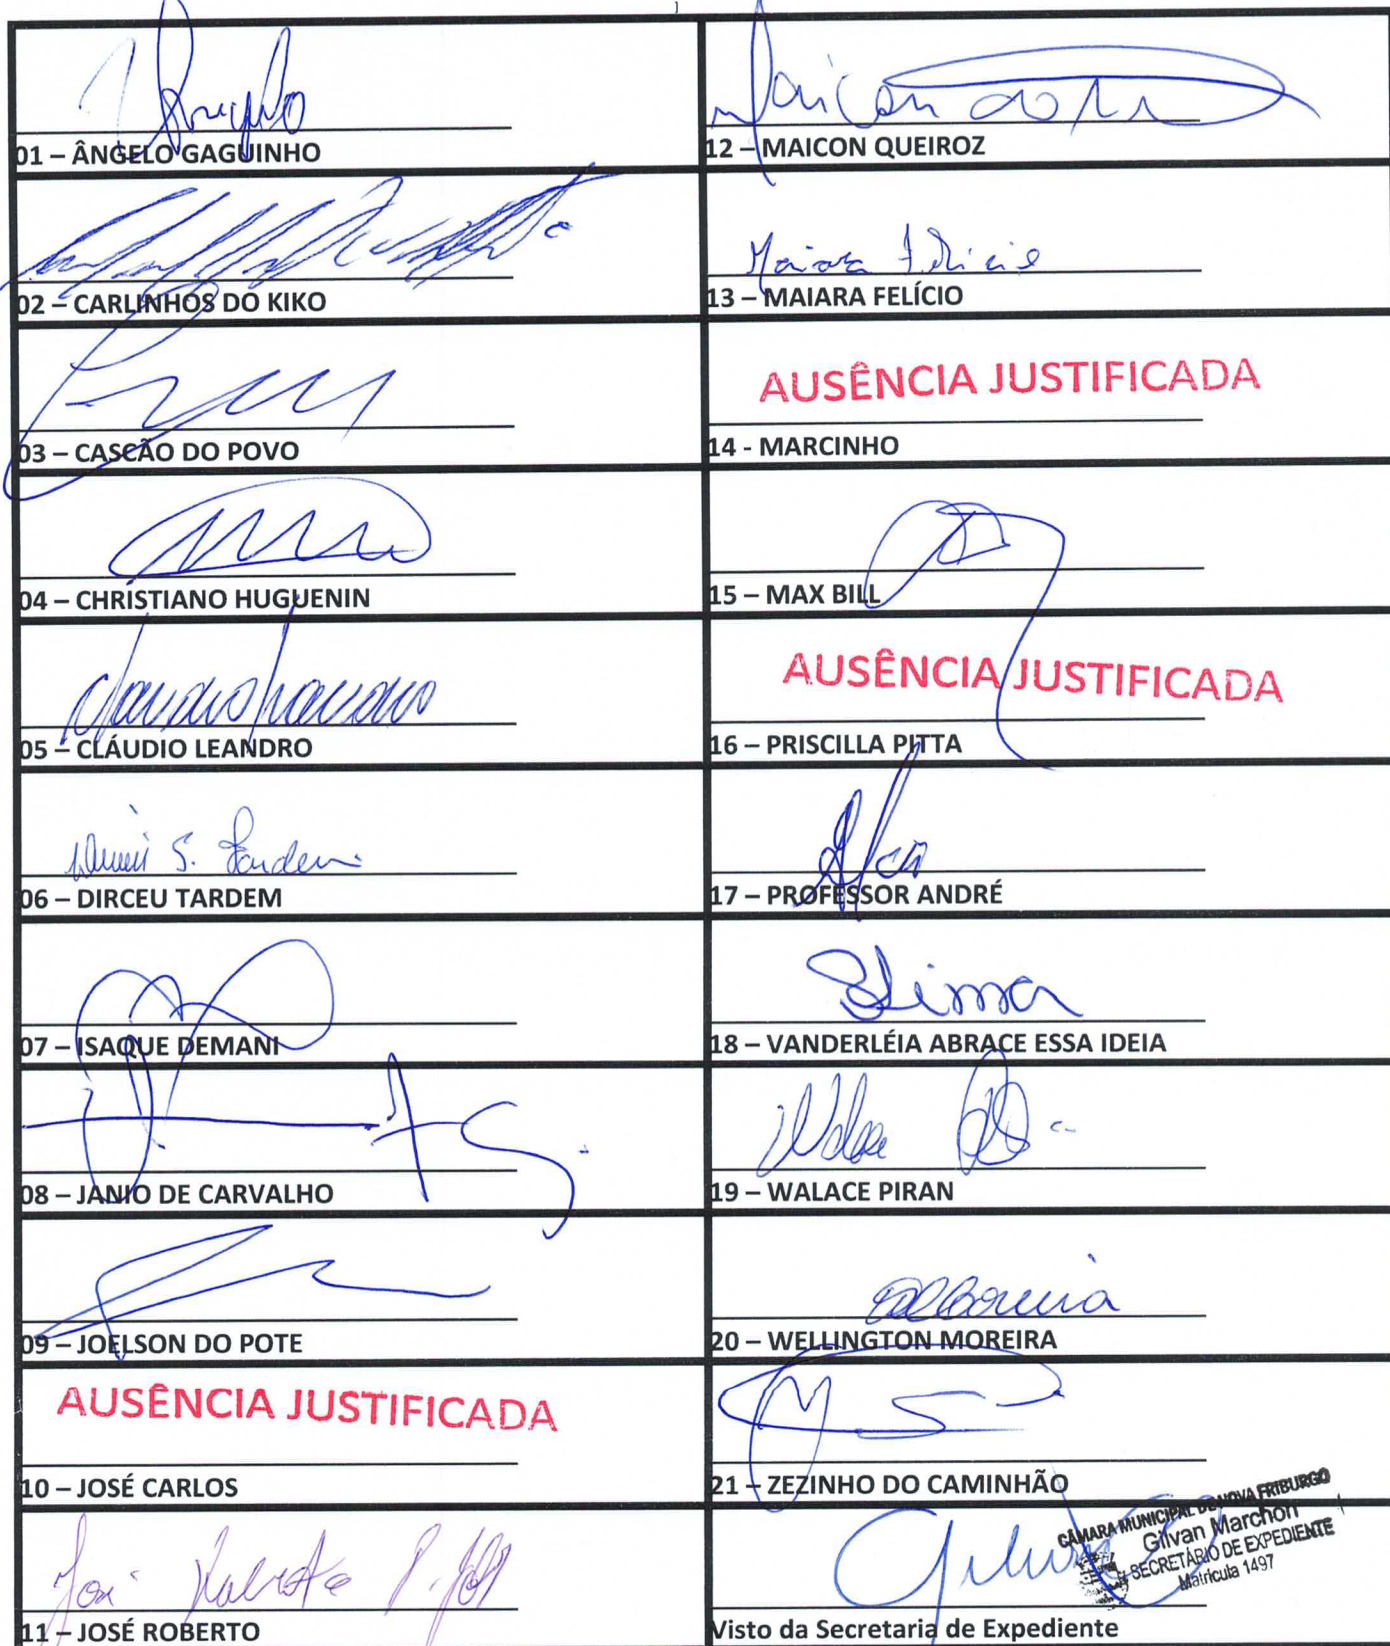 01 – ÂNGELO GAGUINHO
02 – CARLINHOS DO KIKO
03 – CASCÃO DO POVO
04 – CHRISTIANO HUGUENIN
05 – CLÁUDIO LEANDRO
S. Tardem
06 – DIRCEU TARDEM
07 – ISAQUE DEMANI
08 – JANIO DE CARVALHO
09 – JOELSON DO POTE
AUSÊNCIA JUSTIFICADA
10 – JOSÉ CARLOS
José Roberto
11 – JOSÉ ROBERTO
Maicon
12 – MAICON QUEIROZ
Maiara Felício
13 – MAIARA FELÍCIO
AUSÊNCIA JUSTIFICADA
14 - MARCINHO
15 – MAX BILL
AUSÊNCIA JUSTIFICADA
16 – PRISCILLA PITTA
17 – PROFESSOR ANDRÉ
18 – VANDERLÉIA ABRACE ESSA IDEIA
Walace
19 – WALACE PIRAN
20 – WELLINGTON MOREIRA
21 – ZEZINHO DO CAMINHÃO
CÂMARA MUNICIPAL DE NOVA FRIBURGO
Gilvan Marchon
SECRETÁRIO DE EXPEDIENTE
Matrícula 1497
Visto da Secretaria de Expediente